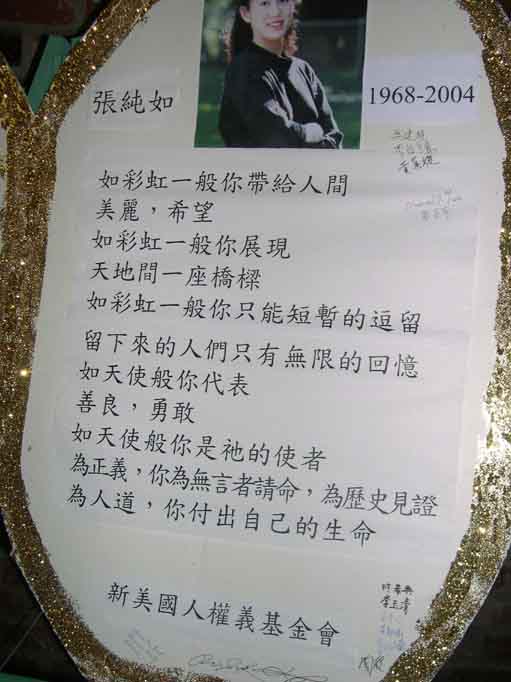 張純如
1968-2004
如彩虹一般你帶給人間
美麗，希望
如彩虹一般你展現
天地間一座橋樑
如彩虹一般你只能短暫的逗留
留下來的人們只有無限的回憶
如天使般你代表
善良，勇敢
如天使般你是祂的使者
為正義，你為無言者請命，為歷史見證
為人道，你付出自己的生命
新美國人權義基金會